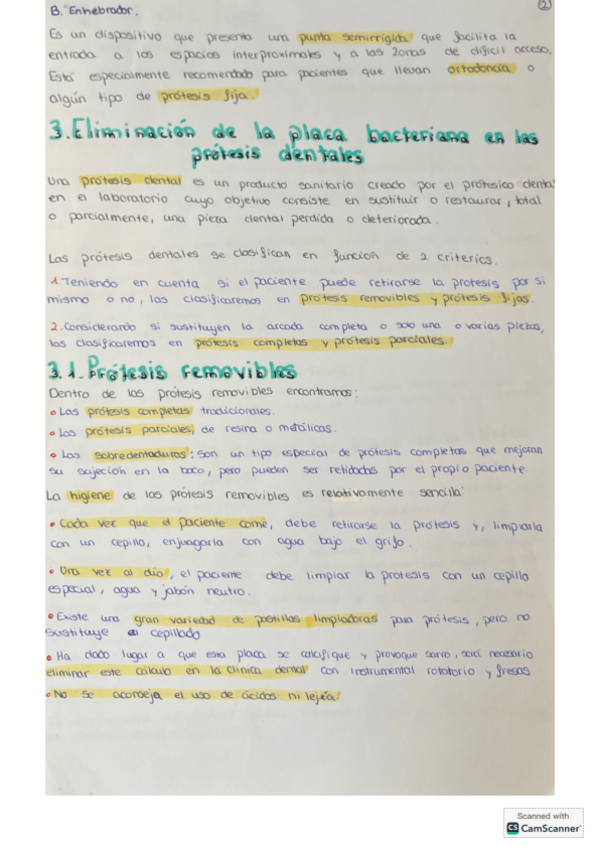 B. Enhebrador.
2
Es un dispositivo que presenta una punta semirrígida que facilita la
entrada a los espacios interproximales y a las zonas de dificil acceso.
Está especialmente recomendado para pacientes que llevan ortodoncia o
algún tipo de prótesis fija.
3. Eliminación de la placa bacteriana en las
prótesis dentales
Una prótesis dental es un producto sanitario creado por el protésico dental
en el laboratorio cuyo objetivo consiste en sustituir o restaurar, total
o parcialmente, una pieza dental perdida o deteriorada.
Las prótesis dentales se clasifican en función de 2 criterios.
1. Teniendo en cuenta si el paciente puede retirarse la protesis por si
mismo o no, las clasificaremos en prótesis removibles y prótesis fijas.
2. Considerando si sustituyen la arcada completa o solo una o varias piezas,
las clasificaremos en prótesis completas y prótesis parciales.
3.1. Prótesis removibles
Dentro de las prótesis removibles encontramos:
• Las prótesis completas tradicionales.
• Las prótesis parciales, de resina o metálicas.
• Las sobredentaduras: son un tipo especial de prótesis completas que mejoran
su sujeción en la boca, pero pueden ser retidadas por el propio paciente.
La higiene de las prótesis removibles es relativamente sencilla:
• Cada vez que el paciente come, debe retirarse la prótesis y, limpiarla
con un cepillo, enjuagarla con agua bajo el grifo.
• Una vez al día, el paciente debe limpiar la protesis con un cepillo
especial, agua y jabón neutro.
• Existe una gran variedad de pastillas limpiadoras para prótesis, pero no
sustituye al cepillado
• Ha dado lugar a que esta placa se calcifique y provoque sarro, será necesario
eliminar este cálculo en la clínica dental con instrumental rotatorio y fresas
• No se aconseja el uso de ácidos ni lejía
Scanned with
CS CamScanner